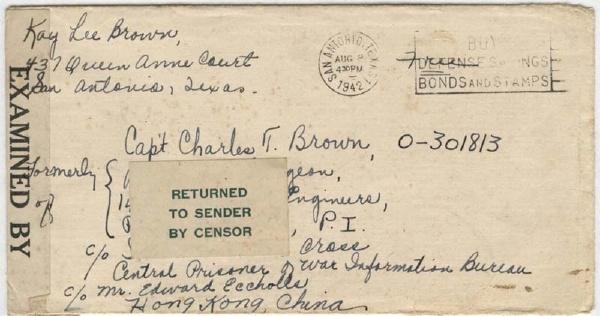 Kay Lee Brown,
437 Queen Anne Court
San Antonio, Texas.
EXAMINED BY
SAN ANTONIO, TEXAS
AUG 8
430 PM
1942
BUY
DEFENSE SAVINGS
BONDS AND STAMPS
Capt Charles T. Brown, 0-301813
Formerly of
geon,
14 Engineers,
P.I.
RETURNED
TO SENDER
BY CENSOR
c/o Cross
Central Prisoner of War Information Bureau
c/o Mr. Edward Eccholls
Hong Kong, China